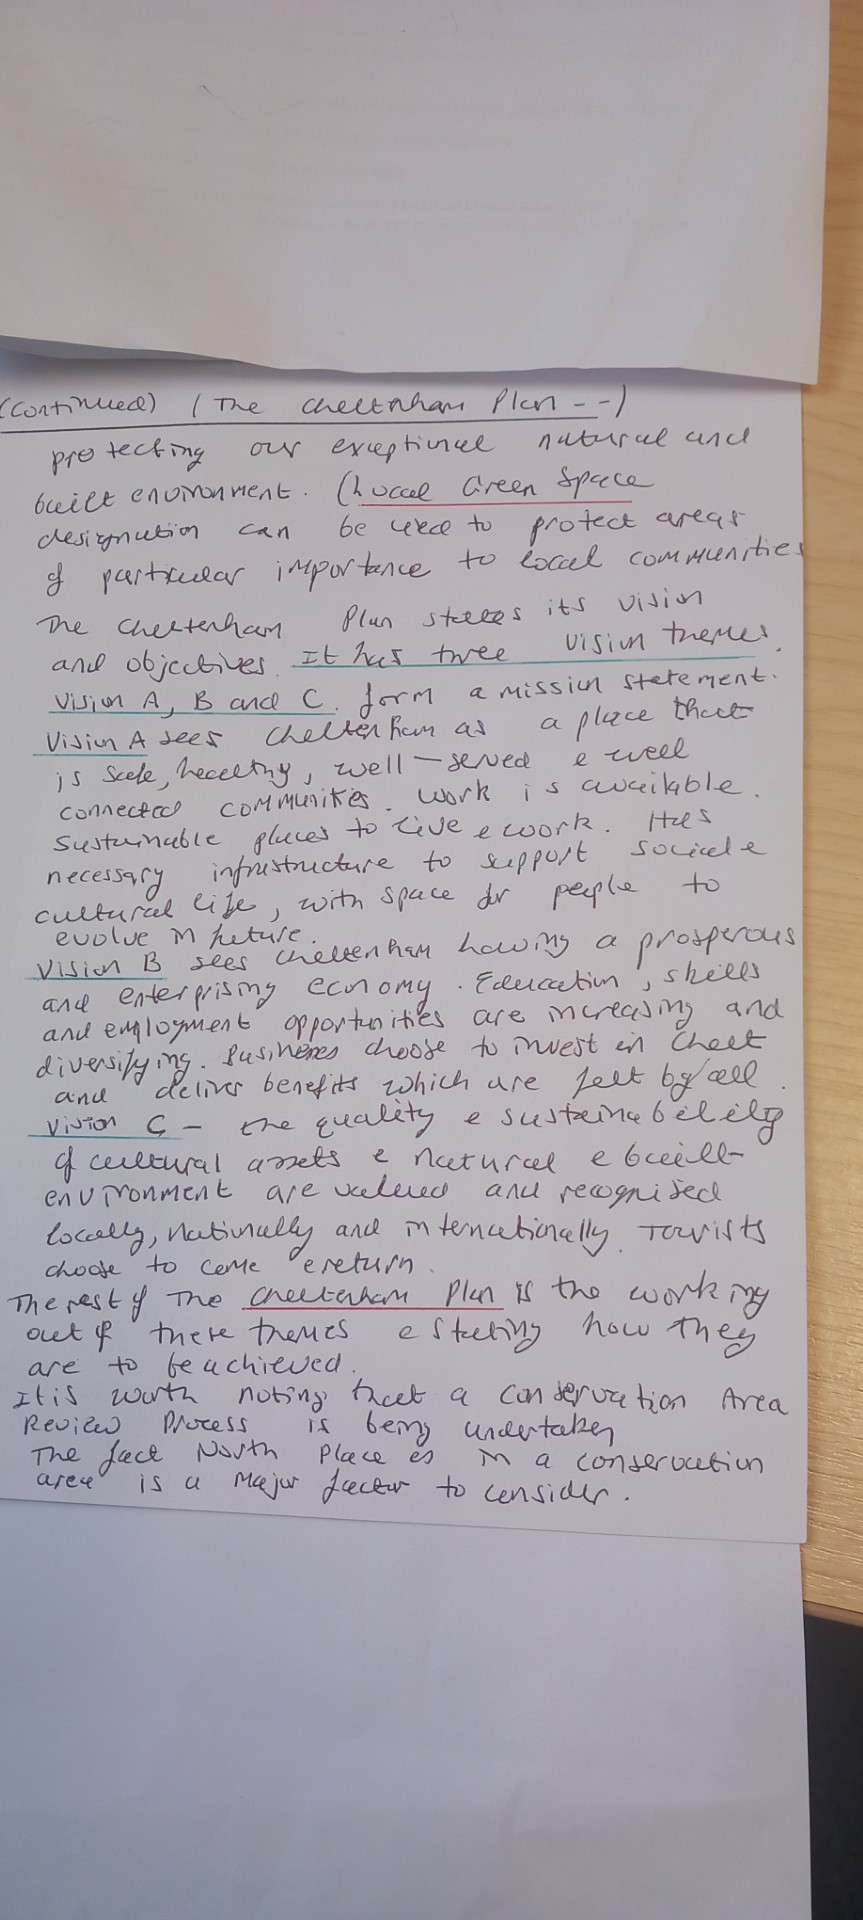 (continued) (The Cheltenham Plan --)
protecting our exceptional natural and
built environment. (Local Green Space
designation can be used to protect areas
of particular importance to local communities
The Cheltenham Plan states its vision
and objectives. It has three vision themes.
Vision A, B and C. form a mission statement.
Vision A sees Cheltenham as a place that
is safe, healthy, well-served & well
connected communities. Work is available.
Sustainable places to live & work. Has
necessary infrastructure to support social &
cultural life, with space for people to
evolve in future.
Vision B sees Cheltenham having a prosperous
and enterprising economy. Education, skills
and employment opportunities are increasing and
diversifying. Businesses choose to invest in Chelt
and deliver benefits which are felt by all.
Vision C - the quality & sustainability
of cultural assets & natural & built
environment are valued and recognised
locally, nationally and internationally. Tourists
choose to come & return.
The rest of The Cheltenham Plan is the working
out of these themes & stating how they
are to be achieved.
It is worth noting that a Conservation Area
Review Process is being undertaken
The fact North Place is in a conservation
area is a major factor to consider.